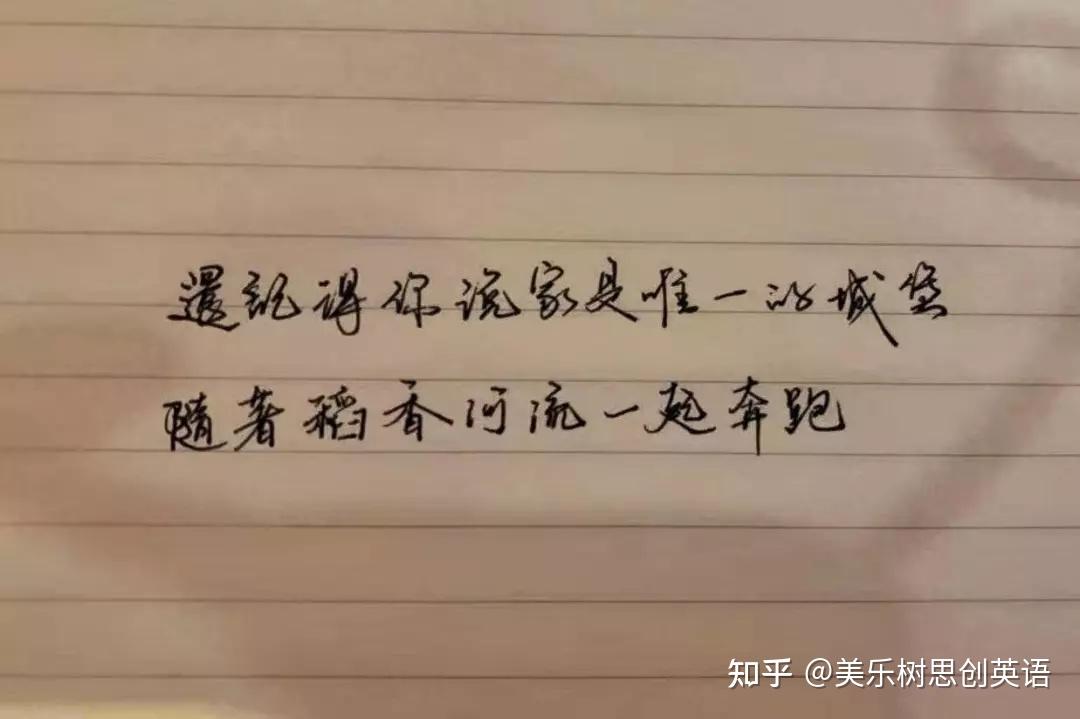 還記得你说家是唯一的城堡
隨著稻香河流一起奔跑
知乎 @美乐树思创英语